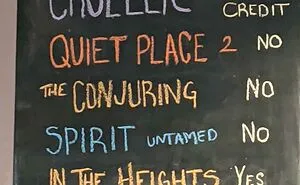 CRUELLA CREDIT
QUIET PLACE 2 NO
THE CONJURING NO
SPIRIT UNTAMED NO
IN THE HEIGHTS YES